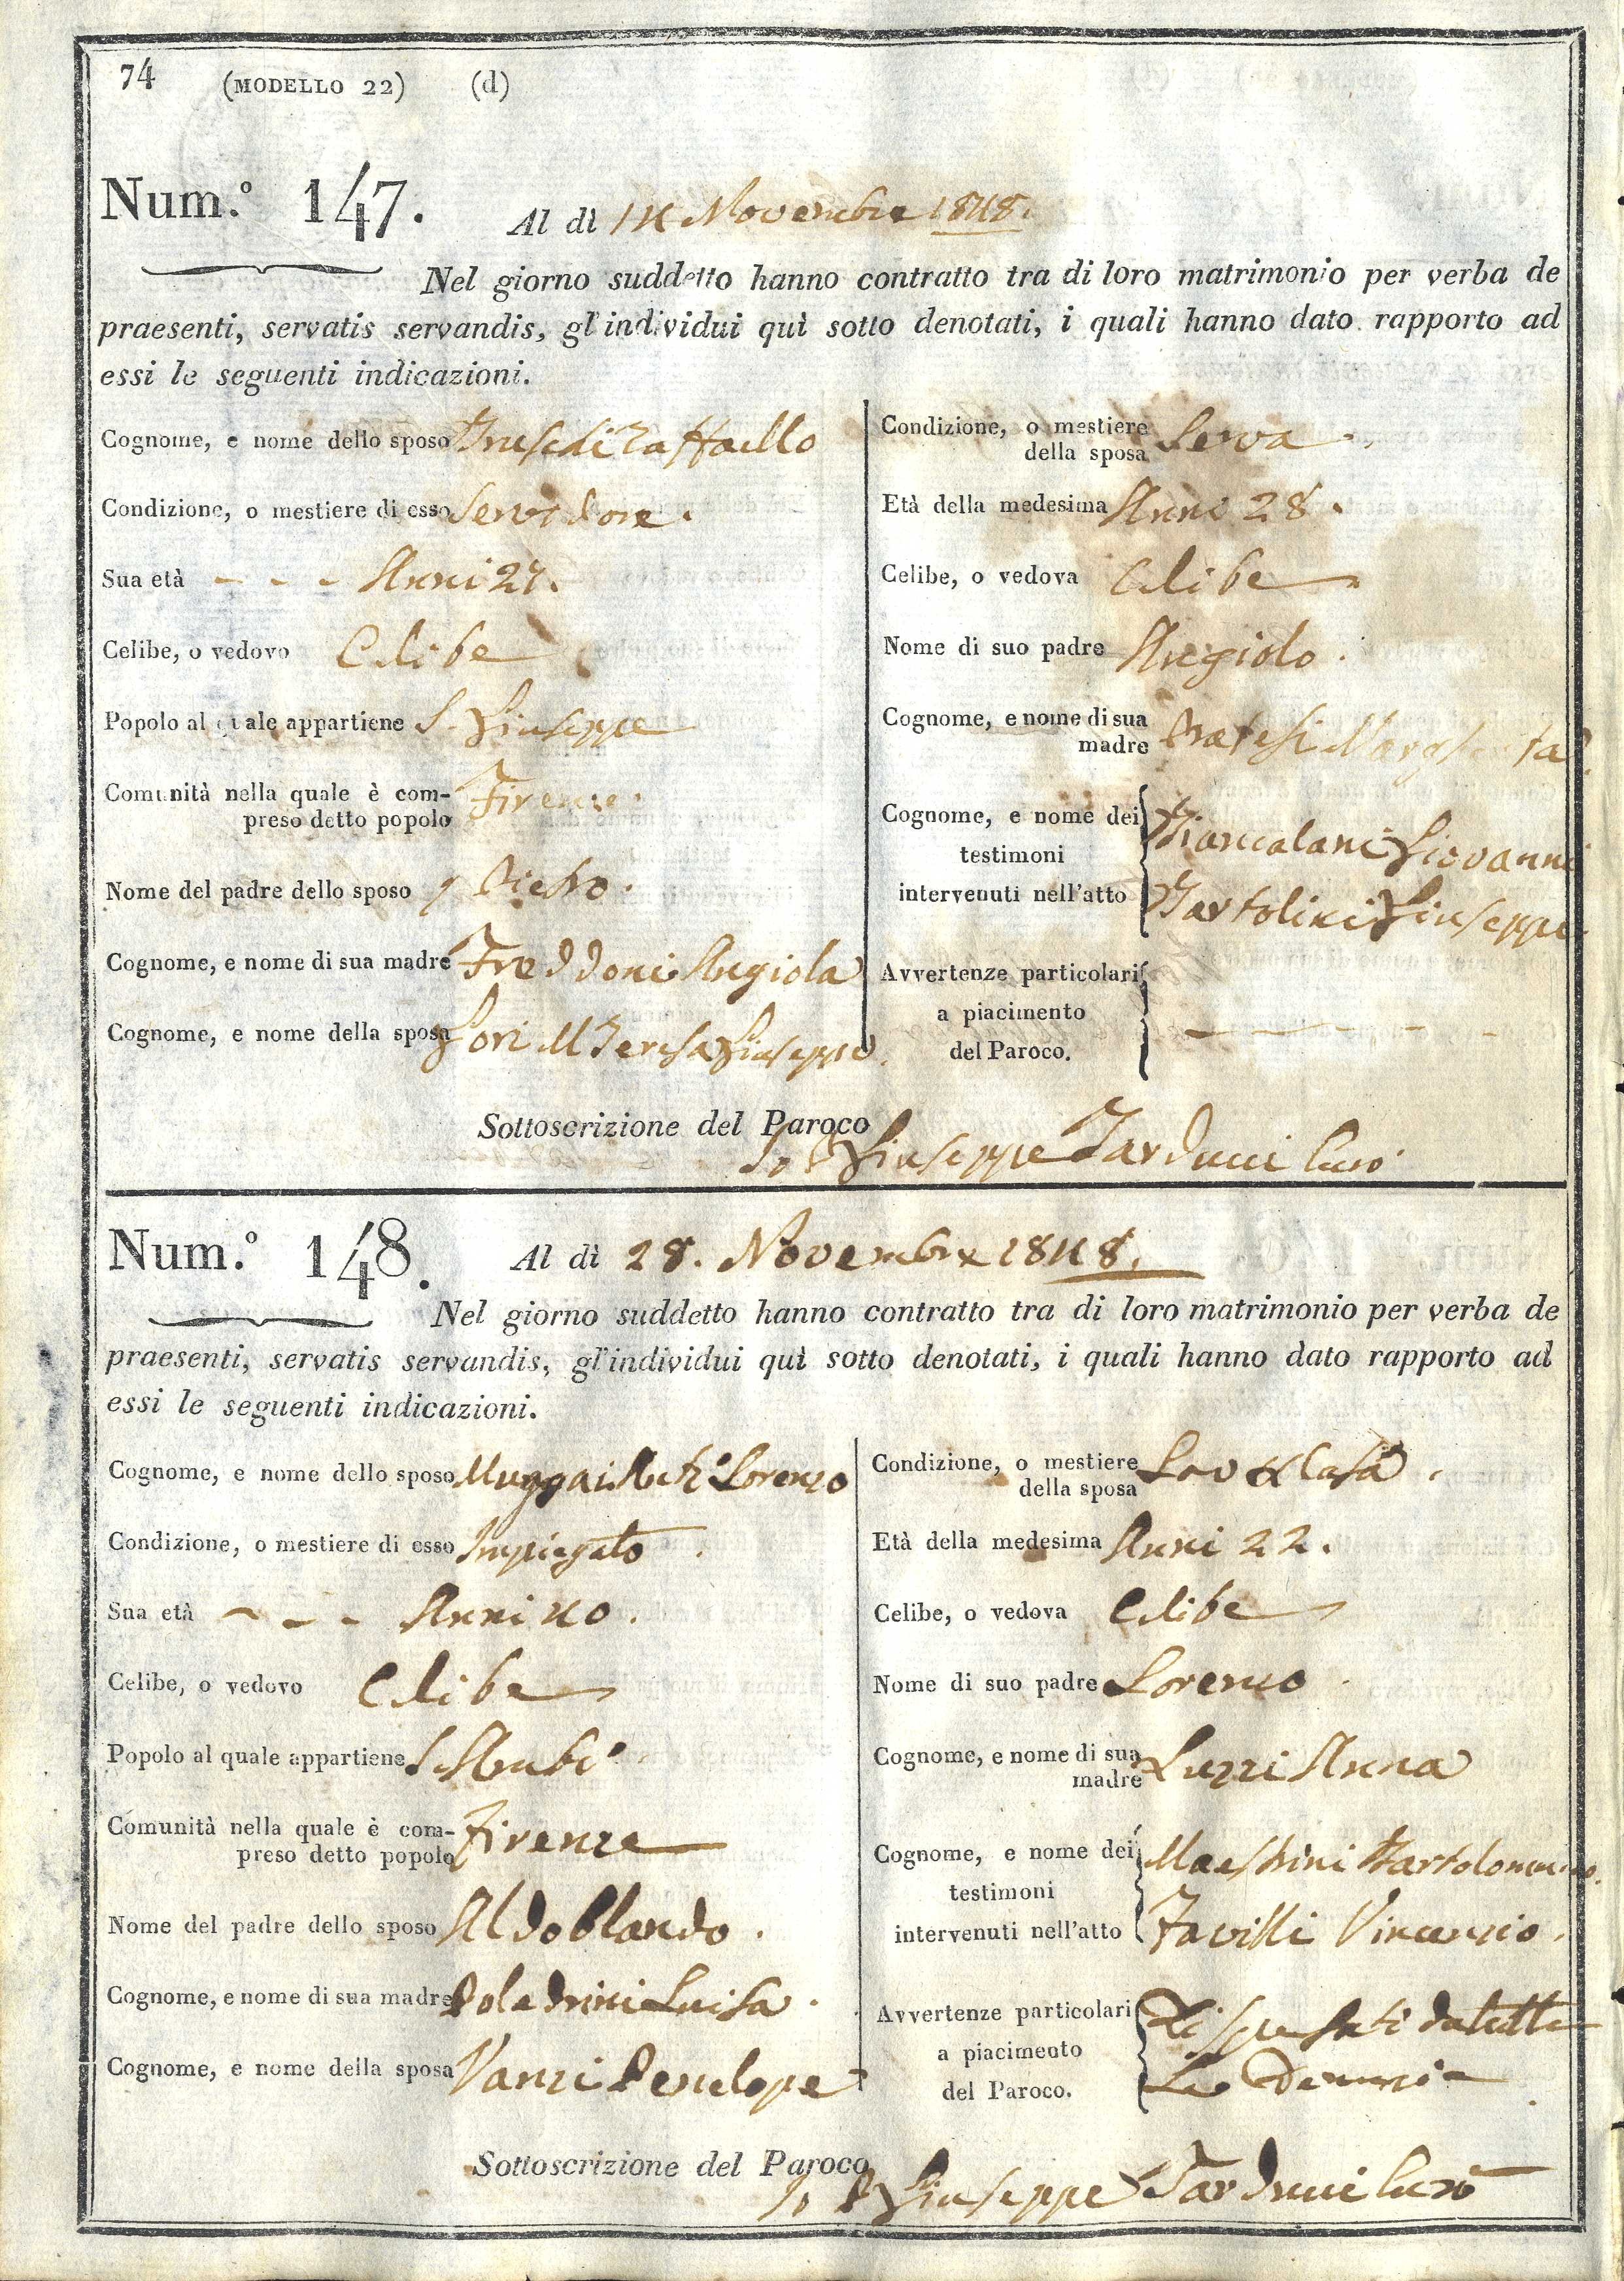 74 (MODELLO 22) (d)
Num.º 147. Al dì 14 Novembre 1848.
Nel giorno suddetto hanno contratto tra di loro matrimonio per verba de
praesenti, servatis servandis, gl'individui quì sotto denotati, i quali hanno dato rapporto ad
essi le seguenti indicazioni.
Cognome, e nome dello sposo Raffaello
Condizione, o mestiere di esso Servidore.
Sua età - - - Anni 27.
Celibe, o vedovo Celibe
Popolo al quale appartiene S. Giuseppe
Comunità nella quale è com-
preso detto popolo Firenze.
Nome del padre dello sposo Pietro.
Cognome, e nome di sua madre Freddoni Angiola
Cognome, e nome della sposa Gori M Teresa Giuseppa.
Condizione, o mestiere
della sposa Serva.
Età della medesima Anni 28.
Celibe, o vedova Celibe
Nome di suo padre Angiolo.
Cognome, e nome di sua
madre Pratesi Margherita
Cognome, e nome dei
testimoni Biancalani Giovanni
intervenuti nell'atto Bartolini Giuseppe
Avvertenze particolari
a piacimento - - - - -
del Paroco.
Sottoscrizione del Paroco
Io P Giuseppe Tarducci Curo
Num.º 148. Al dì 28. Novembre 1848.
Nel giorno suddetto hanno contratto tra di loro matrimonio per verba de
praesenti, servatis servandis, gl'individui quì sotto denotati, i quali hanno dato rapporto ad
essi le seguenti indicazioni.
Cognome, e nome dello sposo Lorenzo
Condizione, o mestiere di esso Impiegato.
Sua età - - - Anni 40.
Celibe, o vedovo Celibe
Popolo al quale appartiene S. Ambº
Comunità nella quale è com-
preso detto popolo Firenze
Nome del padre dello sposo Aldobrando.
Cognome, e nome di sua madre Poledrini Luisa.
Cognome, e nome della sposa Vanzi Penelope
Condizione, o mestiere
della sposa Casa.
Età della medesima Anni 22.
Celibe, o vedova Celibe
Nome di suo padre Lorenzo
Cognome, e nome di sua
madre Luzzi Anna
Cognome, e nome dei
testimoni Maestrini Bartolommeo.
intervenuti nell'atto Favilli Vincenzio.
Avvertenze particolari Dispensati da tutte
a piacimento
del Paroco. Le Denunzie
Sottoscrizione del Paroco
Io P Giuseppe Tarducci Curo